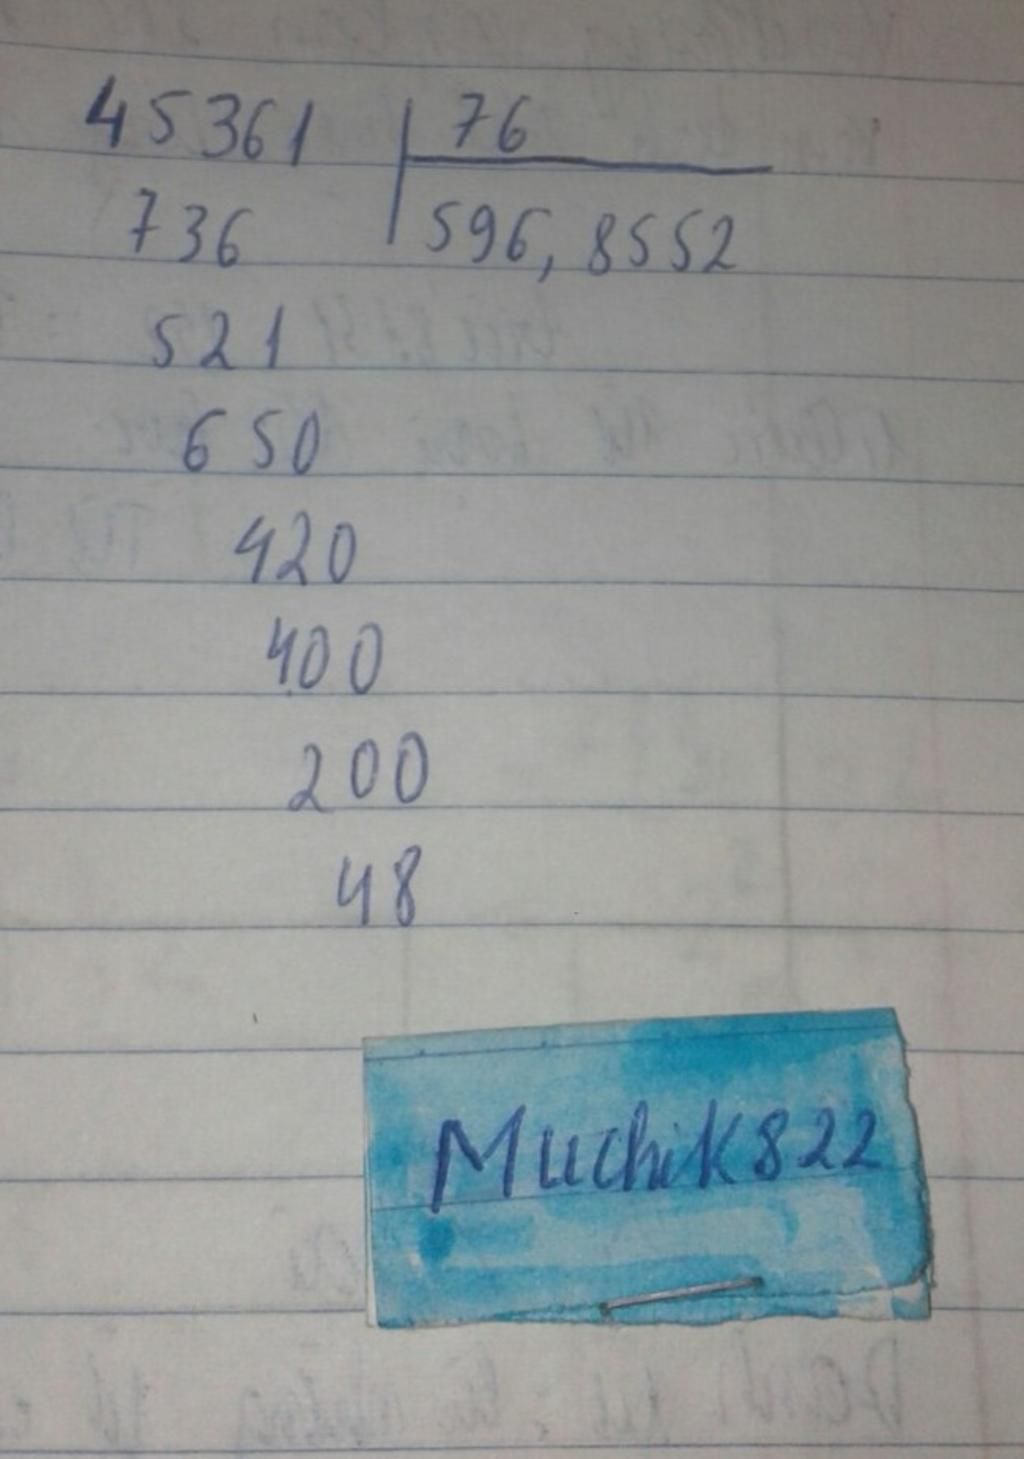 45361 | 76
736 596,8552
521
650
420
400
200
48
Muchik822